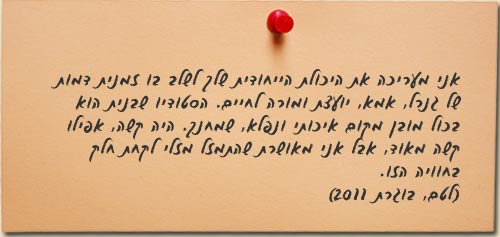 אני מעריכה את היכולת הייחודית שלך לשלב בו זמנית דמות
של גנרל, אמא, יועצת ומורה לחיים. הסטודיו שבנית הוא
בכול מובן מקום איכותי ונפלא, שמחנך. היה קשה, אפילו
קשה מאוד, אבל אני מאושרת שהתמזל מזלי לקחת חלק
בחוויה הזו.
(לטם, בוגרת 2011)